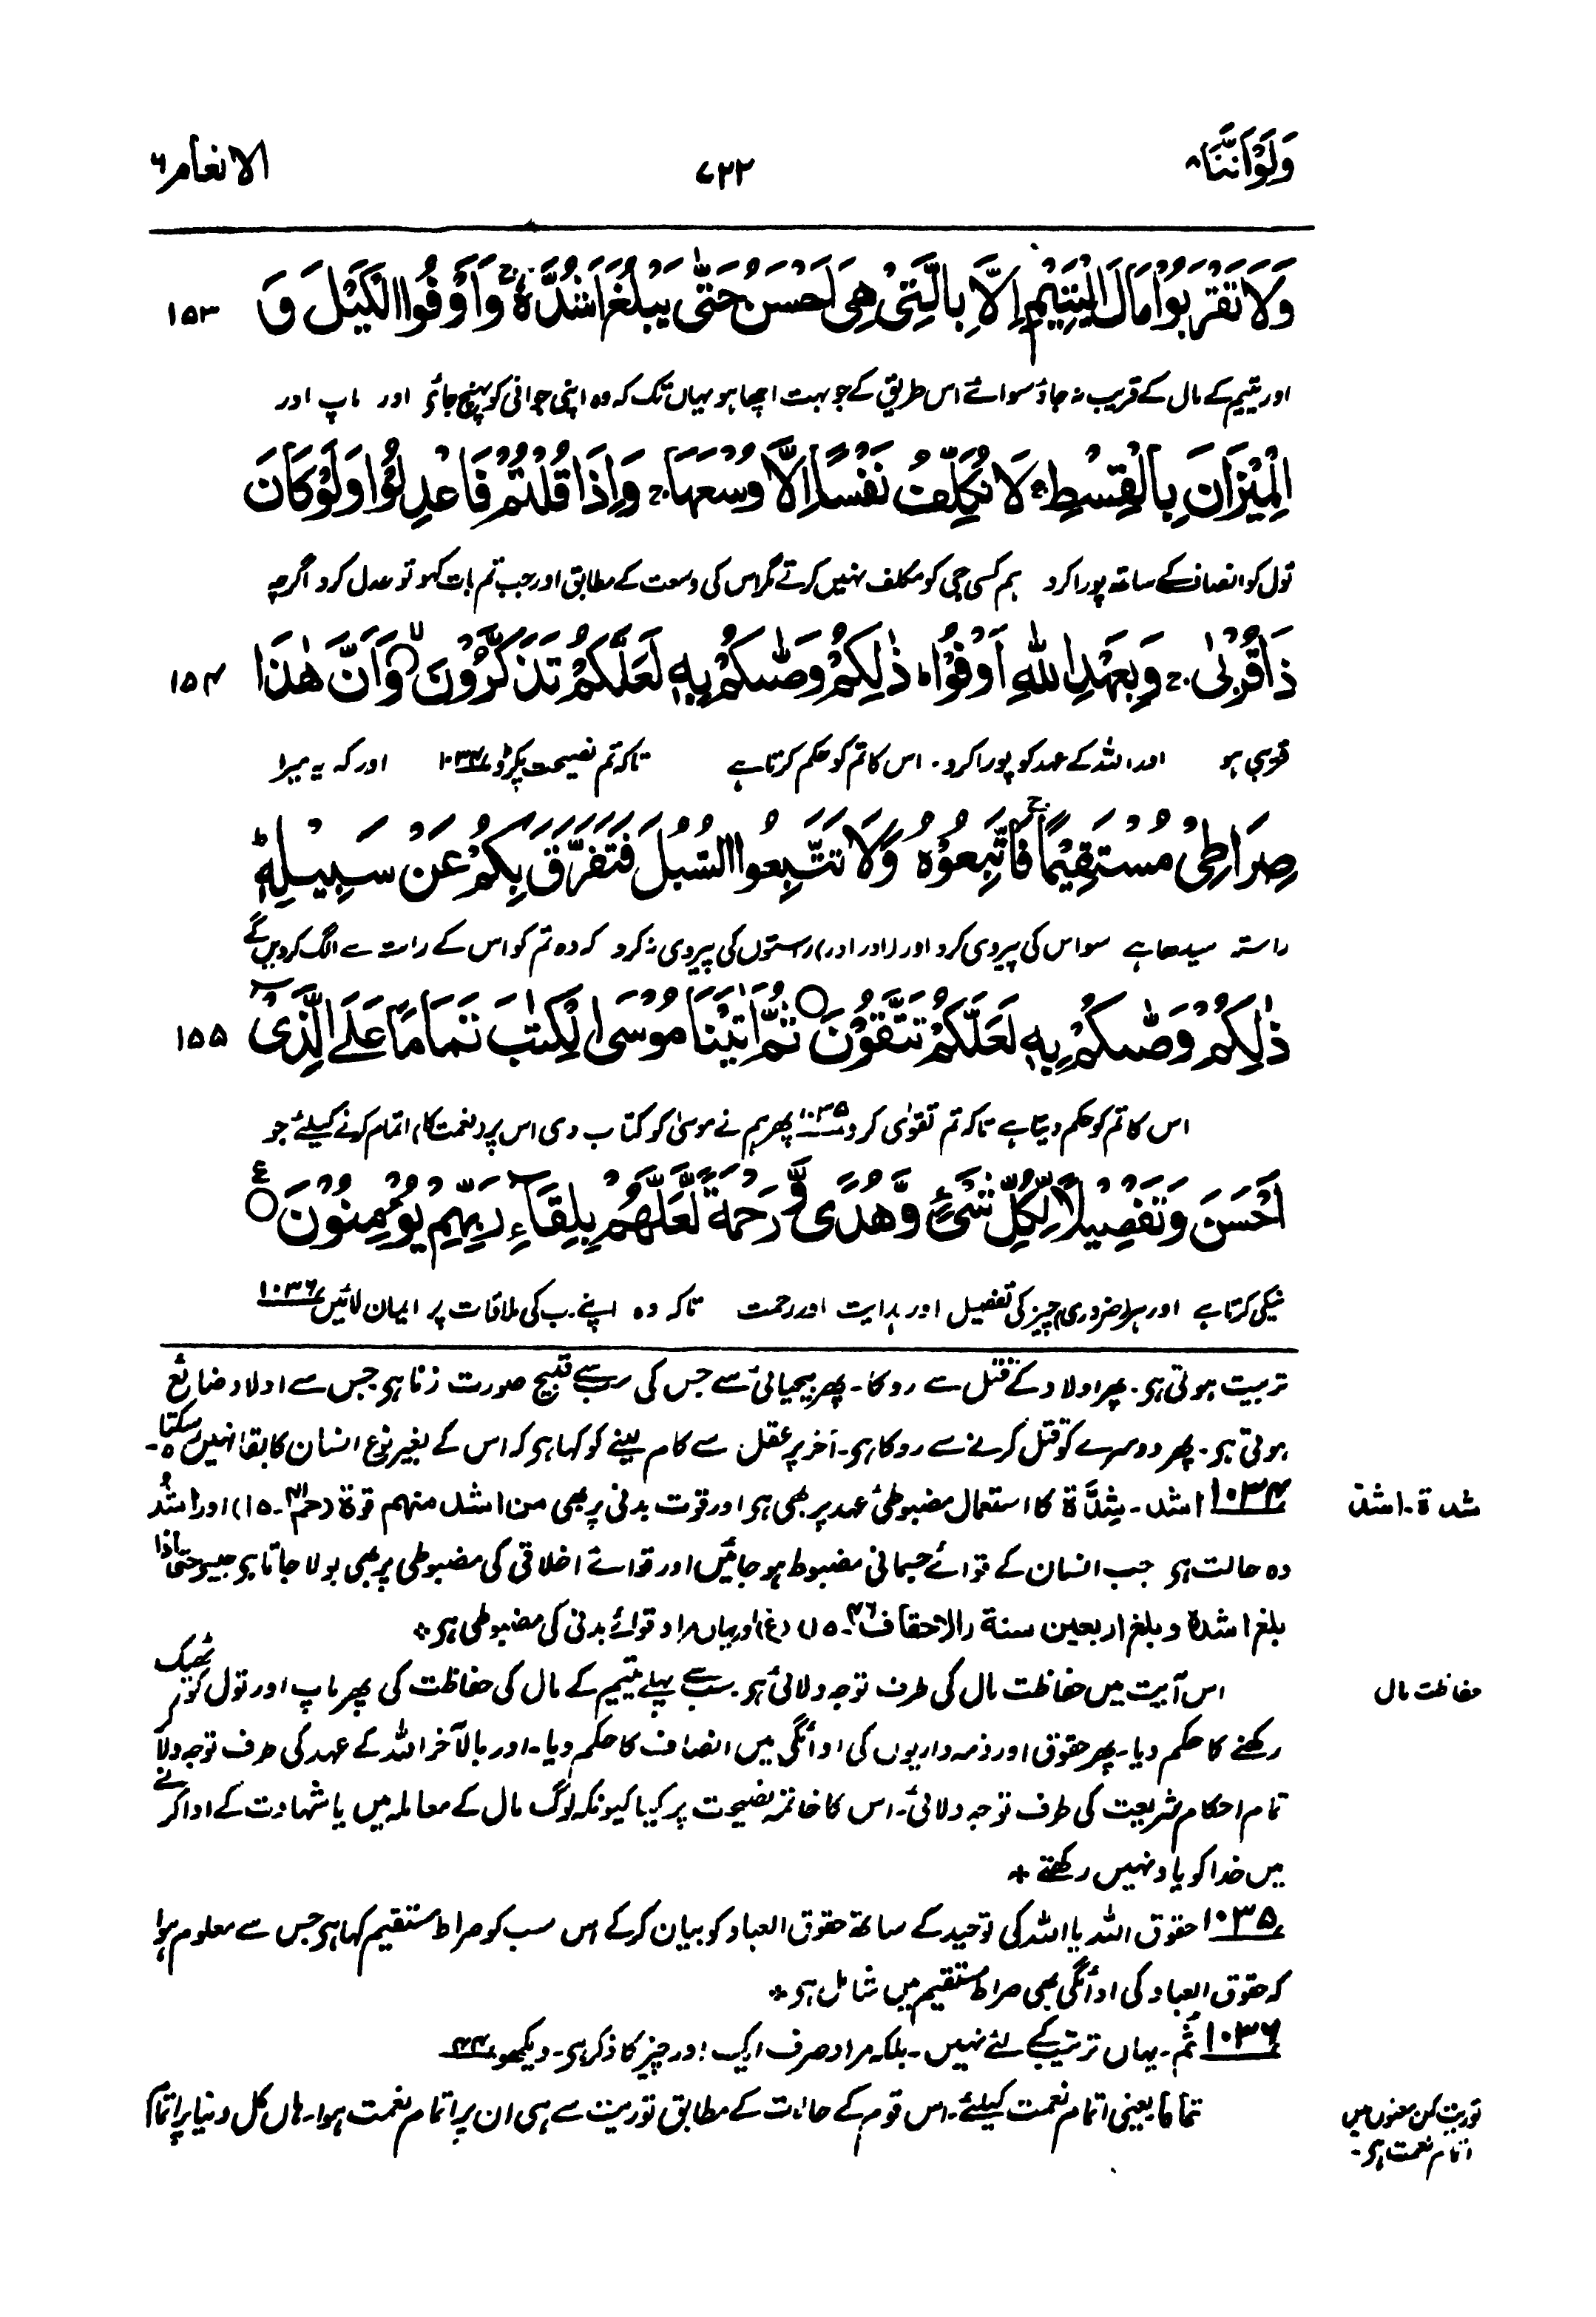 وَلَوْاَنَّنَا ۸
۷۲۲
الانعام ۶
وَلَا تَقْرَبُوْا مَالَ الْيَتِيْمِ اِلَّا بِالَّتِيْ هِيَ اَحْسَنُ حَتّٰى يَبْلُغَ اَشُدَّهٗ ۚ وَاَوْفُوا الْكَيْلَ وَ
۱۵۳
اور یتیم کے مال کے قریب نہ جاؤ سوائے اس طریق کے جو بہت اچھا ہو یہاں تک کہ وہ اپنی جوانی کو پہنچ جائے اور ماپ اور
الْمِيْزَانَ بِالْقِسْطِ ۚ لَا نُكَلِّفُ نَفْسًا اِلَّا وُسْعَهَا ۚ وَاِذَا قُلْتُمْ فَاعْدِلُوْا وَلَوْ كَانَ
تول کو انصاف کے ساتھ پورا کرو ہم کسی جی کو مکلف نہیں کرتے مگر اس کی وسعت کے مطابق اور جب تم بات کہو تو عدل کرو اگرچہ
ذَا قُرْبٰى ۚ وَبِعَهْدِ اللّٰهِ اَوْفُوْا ؕ ذٰلِكُمْ وَصّٰىكُمْ بِهٖ لَعَلَّكُمْ تَذَكَّرُوْنَ ۙ وَاَنَّ هٰذَا
۱۵۴
قریبی ہو اور اللہ کے عہد کو پورا کرو۔ اس کا تم کو حکم کرتا ہے تاکہ تم نصیحت پکڑو ۱۰۳۴ اور کہ یہ میرا
صِرَاطِيْ مُسْتَقِيْمًا فَاتَّبِعُوْهُ ۚ وَلَا تَتَّبِعُوا السُّبُلَ فَتَفَرَّقَ بِكُمْ عَنْ سَبِيْلِهٖ ؕ
راستہ سیدھا ہے سو اس کی پیروی کرو اور (اور اور) رستوں کی پیروی نہ کرو کہ وہ تم کو اس کے راستہ سے الگ کردیں گے
ذٰلِكُمْ وَصّٰىكُمْ بِهٖ لَعَلَّكُمْ تَتَّقُوْنَ ۝ ثُمَّ اٰتَيْنَا مُوْسَى الْكِتٰبَ تَمَامًا عَلَى الَّذِيْٓ
۱۵۵
اس کا تم کو حکم دیتا ہے تاکہ تم تقویٰ کرو ۱۰۳۵ پھر ہم نے موسیٰ کو کتاب دی اس پر (نعمت کا) اتمام کرنے کیلئے جو
اَحْسَنَ وَتَفْصِيْلًا لِّكُلِّ شَيْءٍ وَّهُدًى وَّرَحْمَةً لَّعَلَّهُمْ بِلِقَآءِ رَبِّهِمْ يُؤْمِنُوْنَ ۝ ع
نیکی کرتا ہے اور ہر (ضروری) چیز کی تفصیل اور ہدایت اور رحمت تاکہ وہ اپنے رب کی ملاقات پر ایمان لائیں ۱۰۳۶
تربیت ہوتی ہو۔ پھر اولاد کے قتل سے روکا۔ پھر بیحیائی سے جس کی سب سے قبیح صورت زنا ہو جس سے اولاد ضائع
ہوتی ہو۔ پھر دوسرے کو قتل کرنے سے روکا ہو۔ آخر پر عقل سے کام لینے کو کہا ہو کہ اس کے بغیر نوع انسان کا بقا نہیں ہوسکتا۔
۱۰۳۴ اشد۔ شِدَّة کا استعمال مضبوطیٔ عہد پر بھی ہو اور قوت بدنی پر بھی من اشد منهم قوة (حم ۴۱۔ ۱۵) اور اشُد
شدة۔ اشد
وہ حالت ہو جب انسان کے قوائے جسمانی مضبوط ہو جائیں اور قوائے اخلاقی کی مضبوطی پر بھی بولا جاتا ہو جیسے حتی اذا
بلغ اشدہ وبلغ اربعین سنة (الاحقاف ۴۶۔ ۱۵) (غ) اور یہاں مراد قوائے بدنی کی مضبوطی ہو ٭
اس آیت میں حفاظت مال کی طرف توجہ دلائی ہو۔ سب سے پہلے یتیم کے مال کی حفاظت کی پھر ماپ اور تول کو ٹھیک
حفاظت مال
رکھنے کا حکم دیا۔ پھر حقوق اور ذمہ داریوں کی ادائگی میں انصاف کا حکم دیا۔ اور بالآخر اللہ کے عہد کی طرف توجہ دلا
تمام احکام شریعت کی طرف توجہ دلائی۔ اس کا خاتمہ نصیحت پر کیا کیونکہ لوگ مال کے معاملہ میں یا شہادت کے ادا کرنے
میں خدا کو یاد نہیں رکھتے ٭
۱۰۳۵ حقوق اللہ یا اللہ کی توحید کے ساتھ حقوق العباد کو بیان کرکے اس سب کو صراط مستقیم کہا ہو جس سے معلوم ہوا
کہ حقوق العباد کی ادائگی بھی صراط مستقیم میں شامل ہو ٭
۱۰۳۶ ثُم۔ یہاں ترتیب کے لئے نہیں۔ بلکہ مراد صرف ایک اور چیز کا ذکر ہو۔ دیکھو ۴۴
تماما یعنی اتمام نعمت کیلئے۔ اس قوم کے حالات کے مطابق توریت سے ہی ان پر اتمام نعمت ہوا۔ ہاں کل دنیا پر اتمام
توریت کن معنوں میں
اتمام نعمت ہو۔